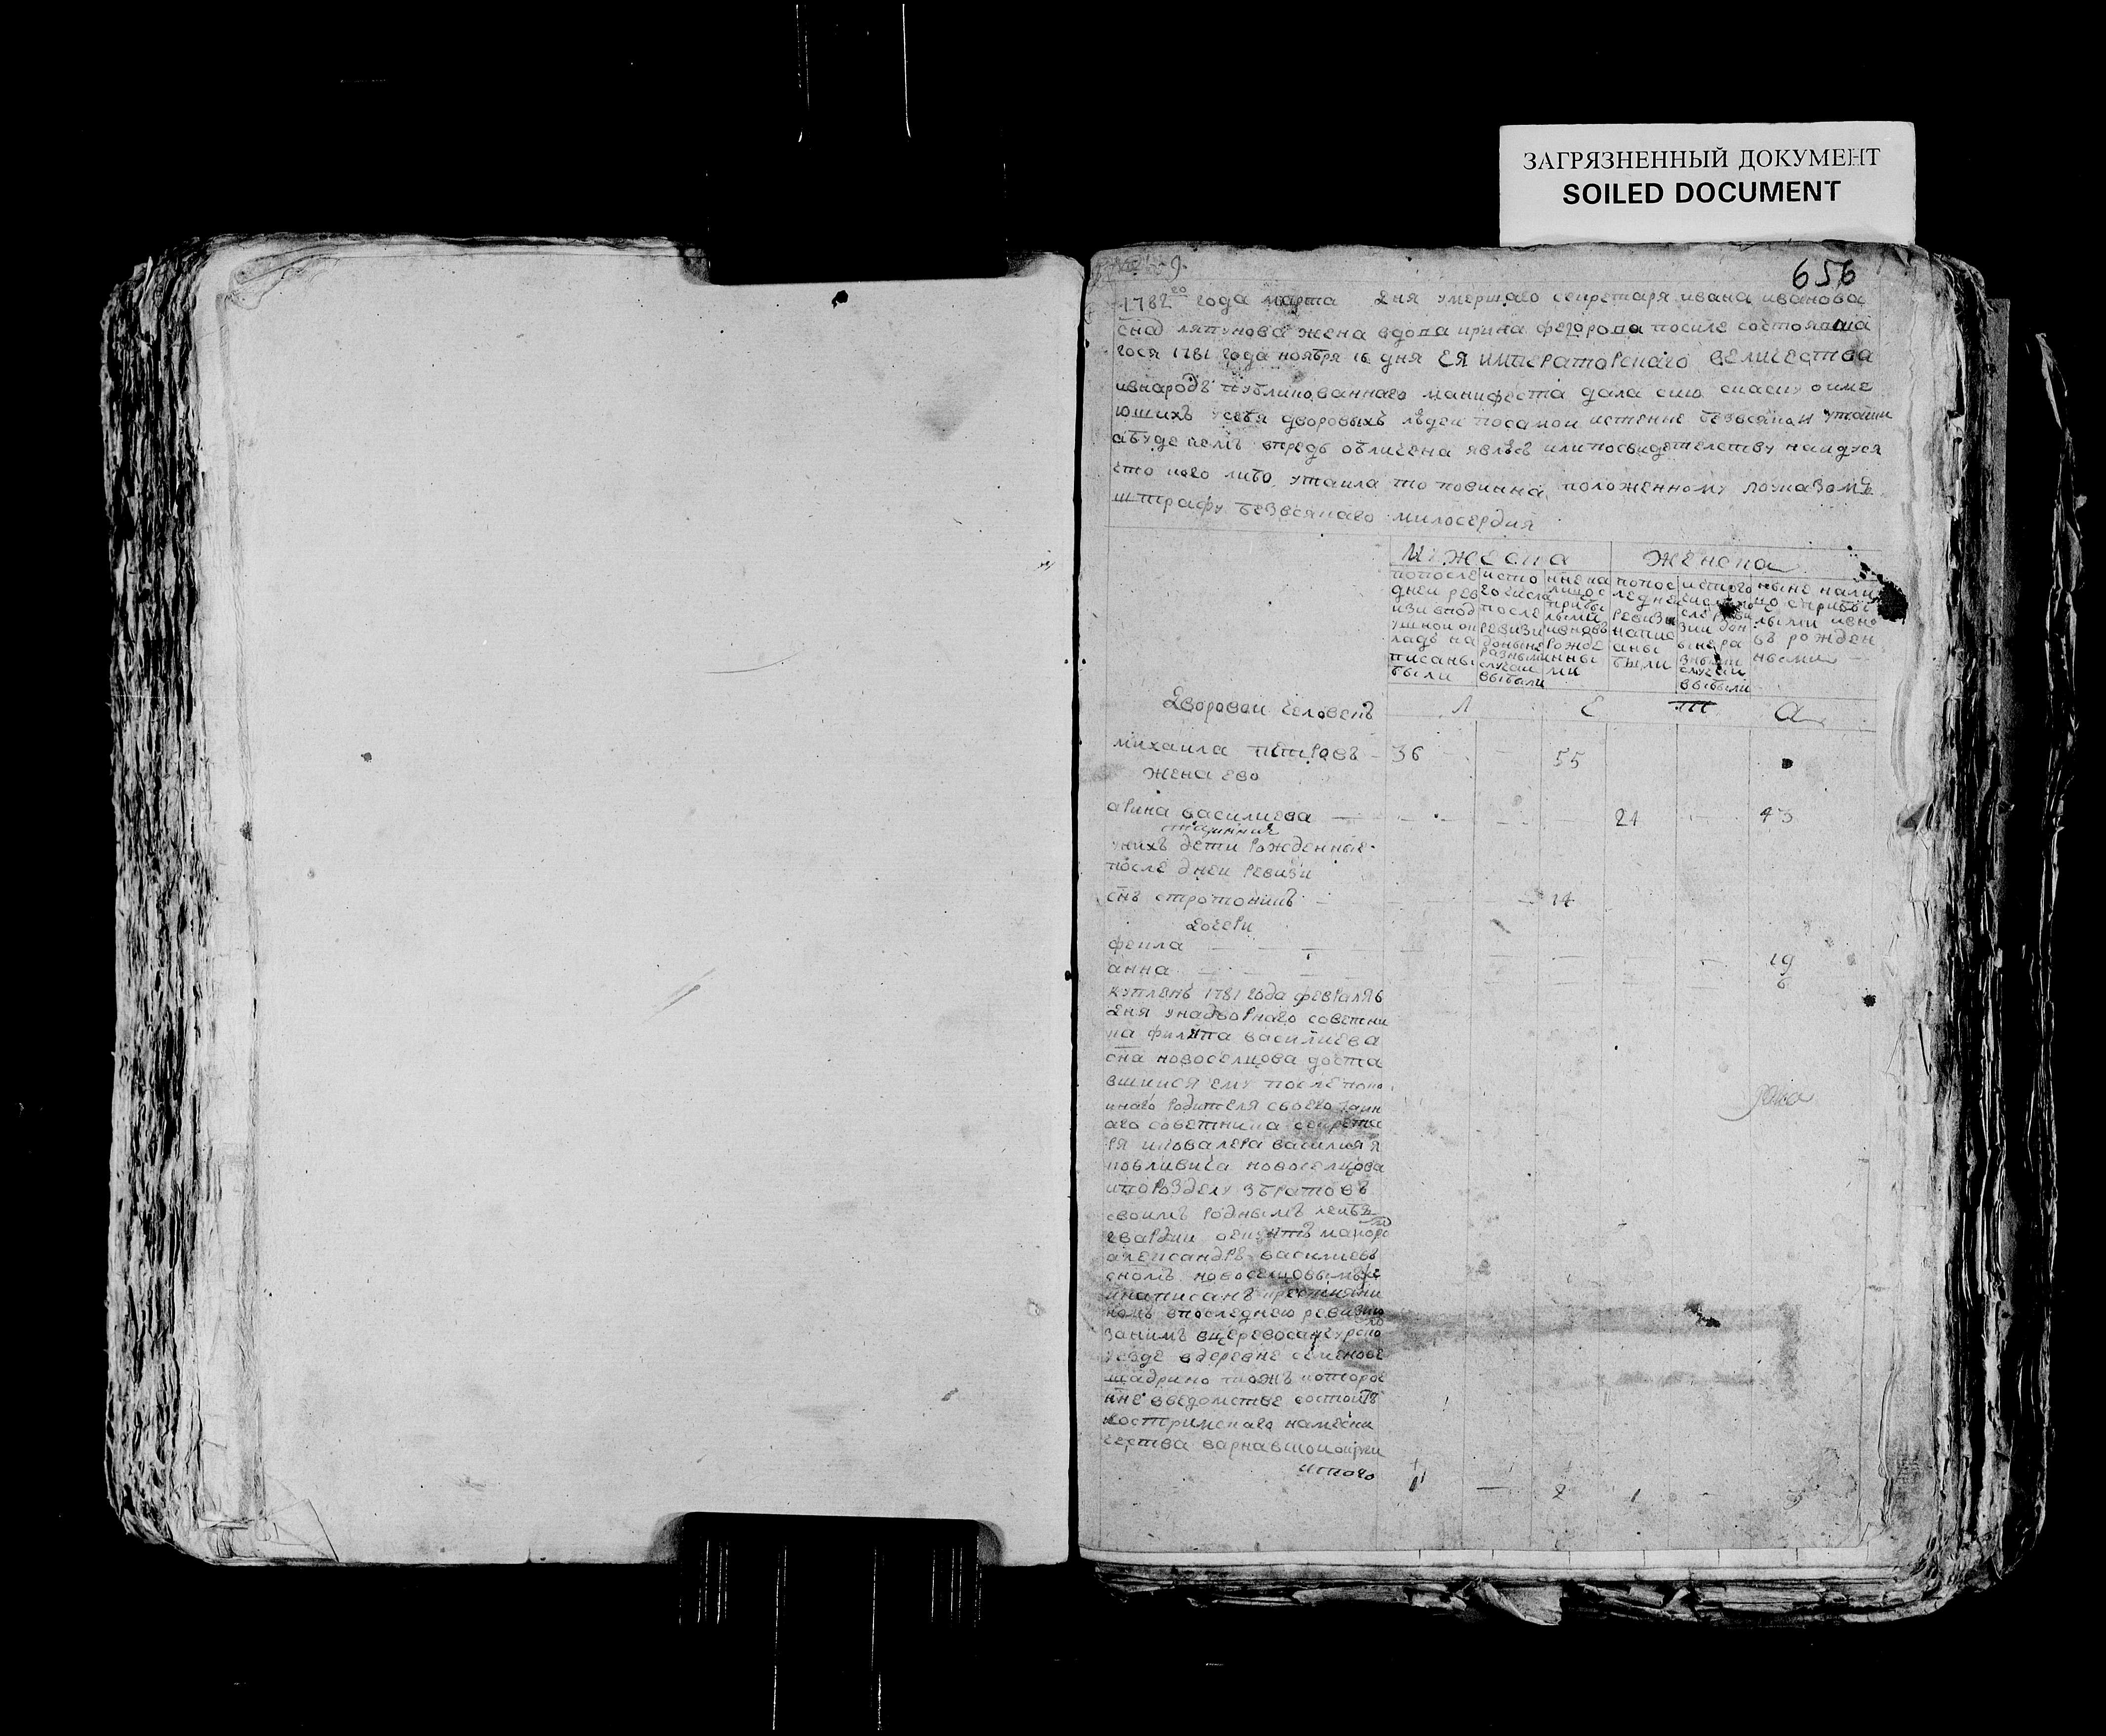 ЗАГРЯЗНЕННЫЙ ДОКУМЕНТ
SOILED DOCUMENT
656
1782 20 года марта дня умершаго секретаря ивана иванова
сна ляпунова жена вдова ирина федорова посиле состоявша
гося 1781 года ноября 16 дня ЕЯ императорскаго величества
ивнародъ публикованнаго манифеста дала сию скаску о име
ющихъ усебя дворовыхъ людеи посамои истенне безвсякои утаики
абуде кемъ впредь обличена явлюсь или посвидетелству наидуся
что кого либо утаила то повинна положенному поуказомъ
штрафу безвсякаго милосердия
Мужеска Женска
попосле дней реви изи впод ушнои ок ладъ на писаны были
исто го числа после ревизи доныне разными случаи выбыли
ныне на лицо с прибы лыми ивновь рожде нными
попос ледне ревизи напис аны были
истого числа после реви зии дон ыне ра зными случаи выбыли
ныне нали цо сприбы лыми ивно въ рожден ными
Дворовои человекъ
Л Е т а
михаила петровъ 36 55
жена ево
арина василиева 21 43
унихъ дети рожденные
после днеи ревизи
снъ стротоникъ 14
дочери
фекла 19
анна 6
купленъ 1781 года февраля 6
дня унадворнаго советни
ка филипа василиева
сна новоселцова доста
вшиися ему после поко
инаго родителя своего таин
аго советника секрета
ря иковалера василия
новоселцова
ипоразделу збратомъ
своимъ роднымъ леибъ
гвардии секунтъ маиоро
александръ василиевъ
сномъ новоселцовымъ
инаписанъ
последнею ревизию
занимъ
уезде вдеревне семенове
шадрино тожъ которое
нне введомстве состоитъ
костромскаго намесни
чества варнавинскои округи
итого 1 2 1 3